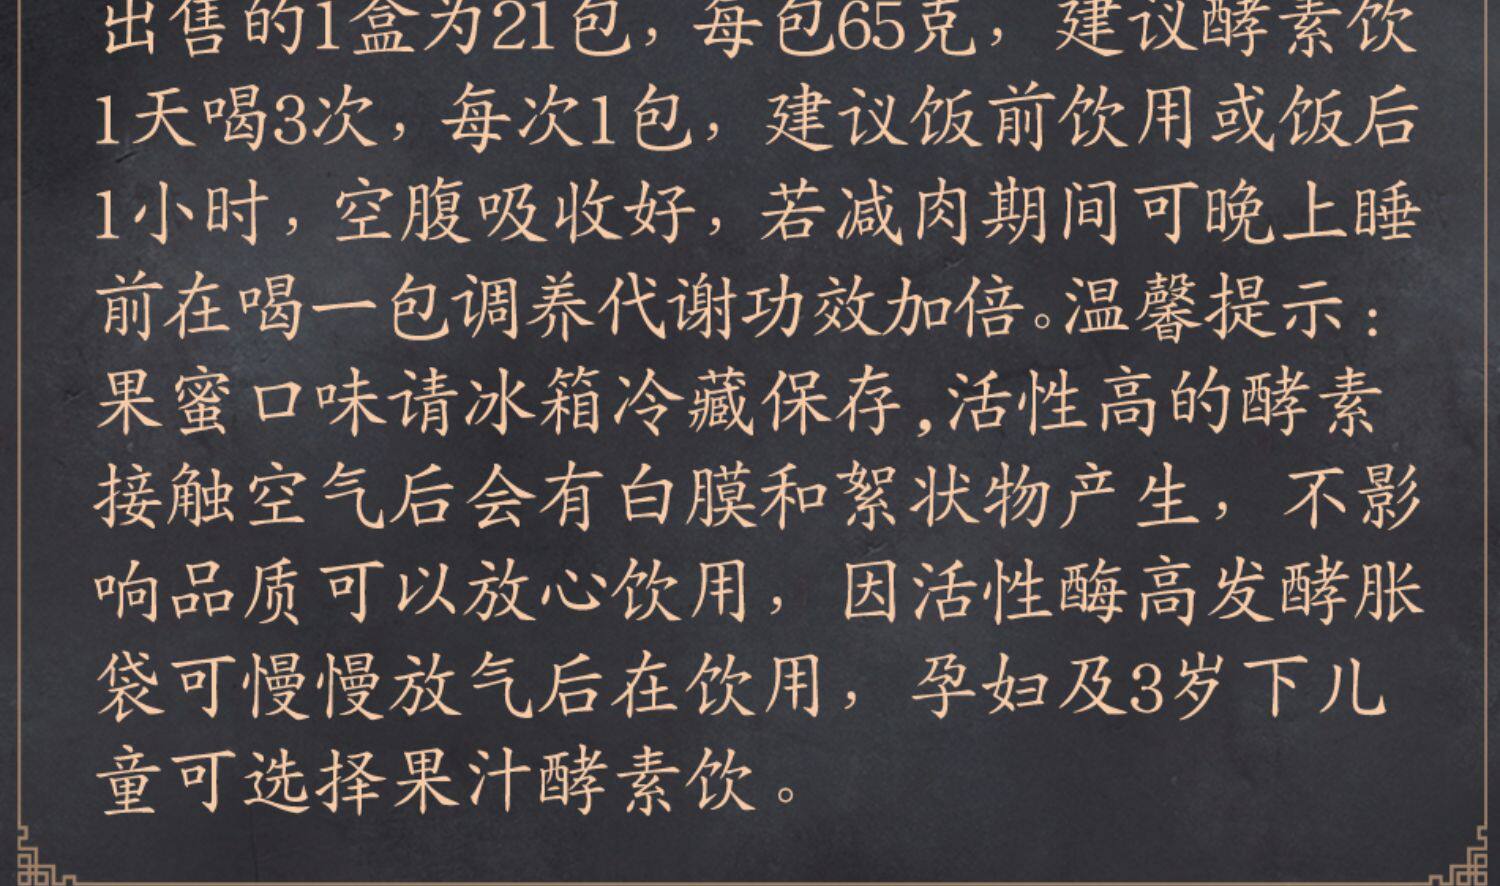 出售的1盒为21包，每包65克，建议酵素饮
1天喝3次，每次1包，建议饭前饮用或饭后
1小时，空腹吸收好，若减肉期间可晚上睡
前在喝一包调养代谢功效加倍。温馨提示：
果蜜口味请冰箱冷藏保存,活性高的酵素
接触空气后会有白膜和絮状物产生，不影
响品质可以放心饮用，因活性酶高发酵胀
袋可慢慢放气后在饮用，孕妇及3岁下儿
童可选择果汁酵素饮。